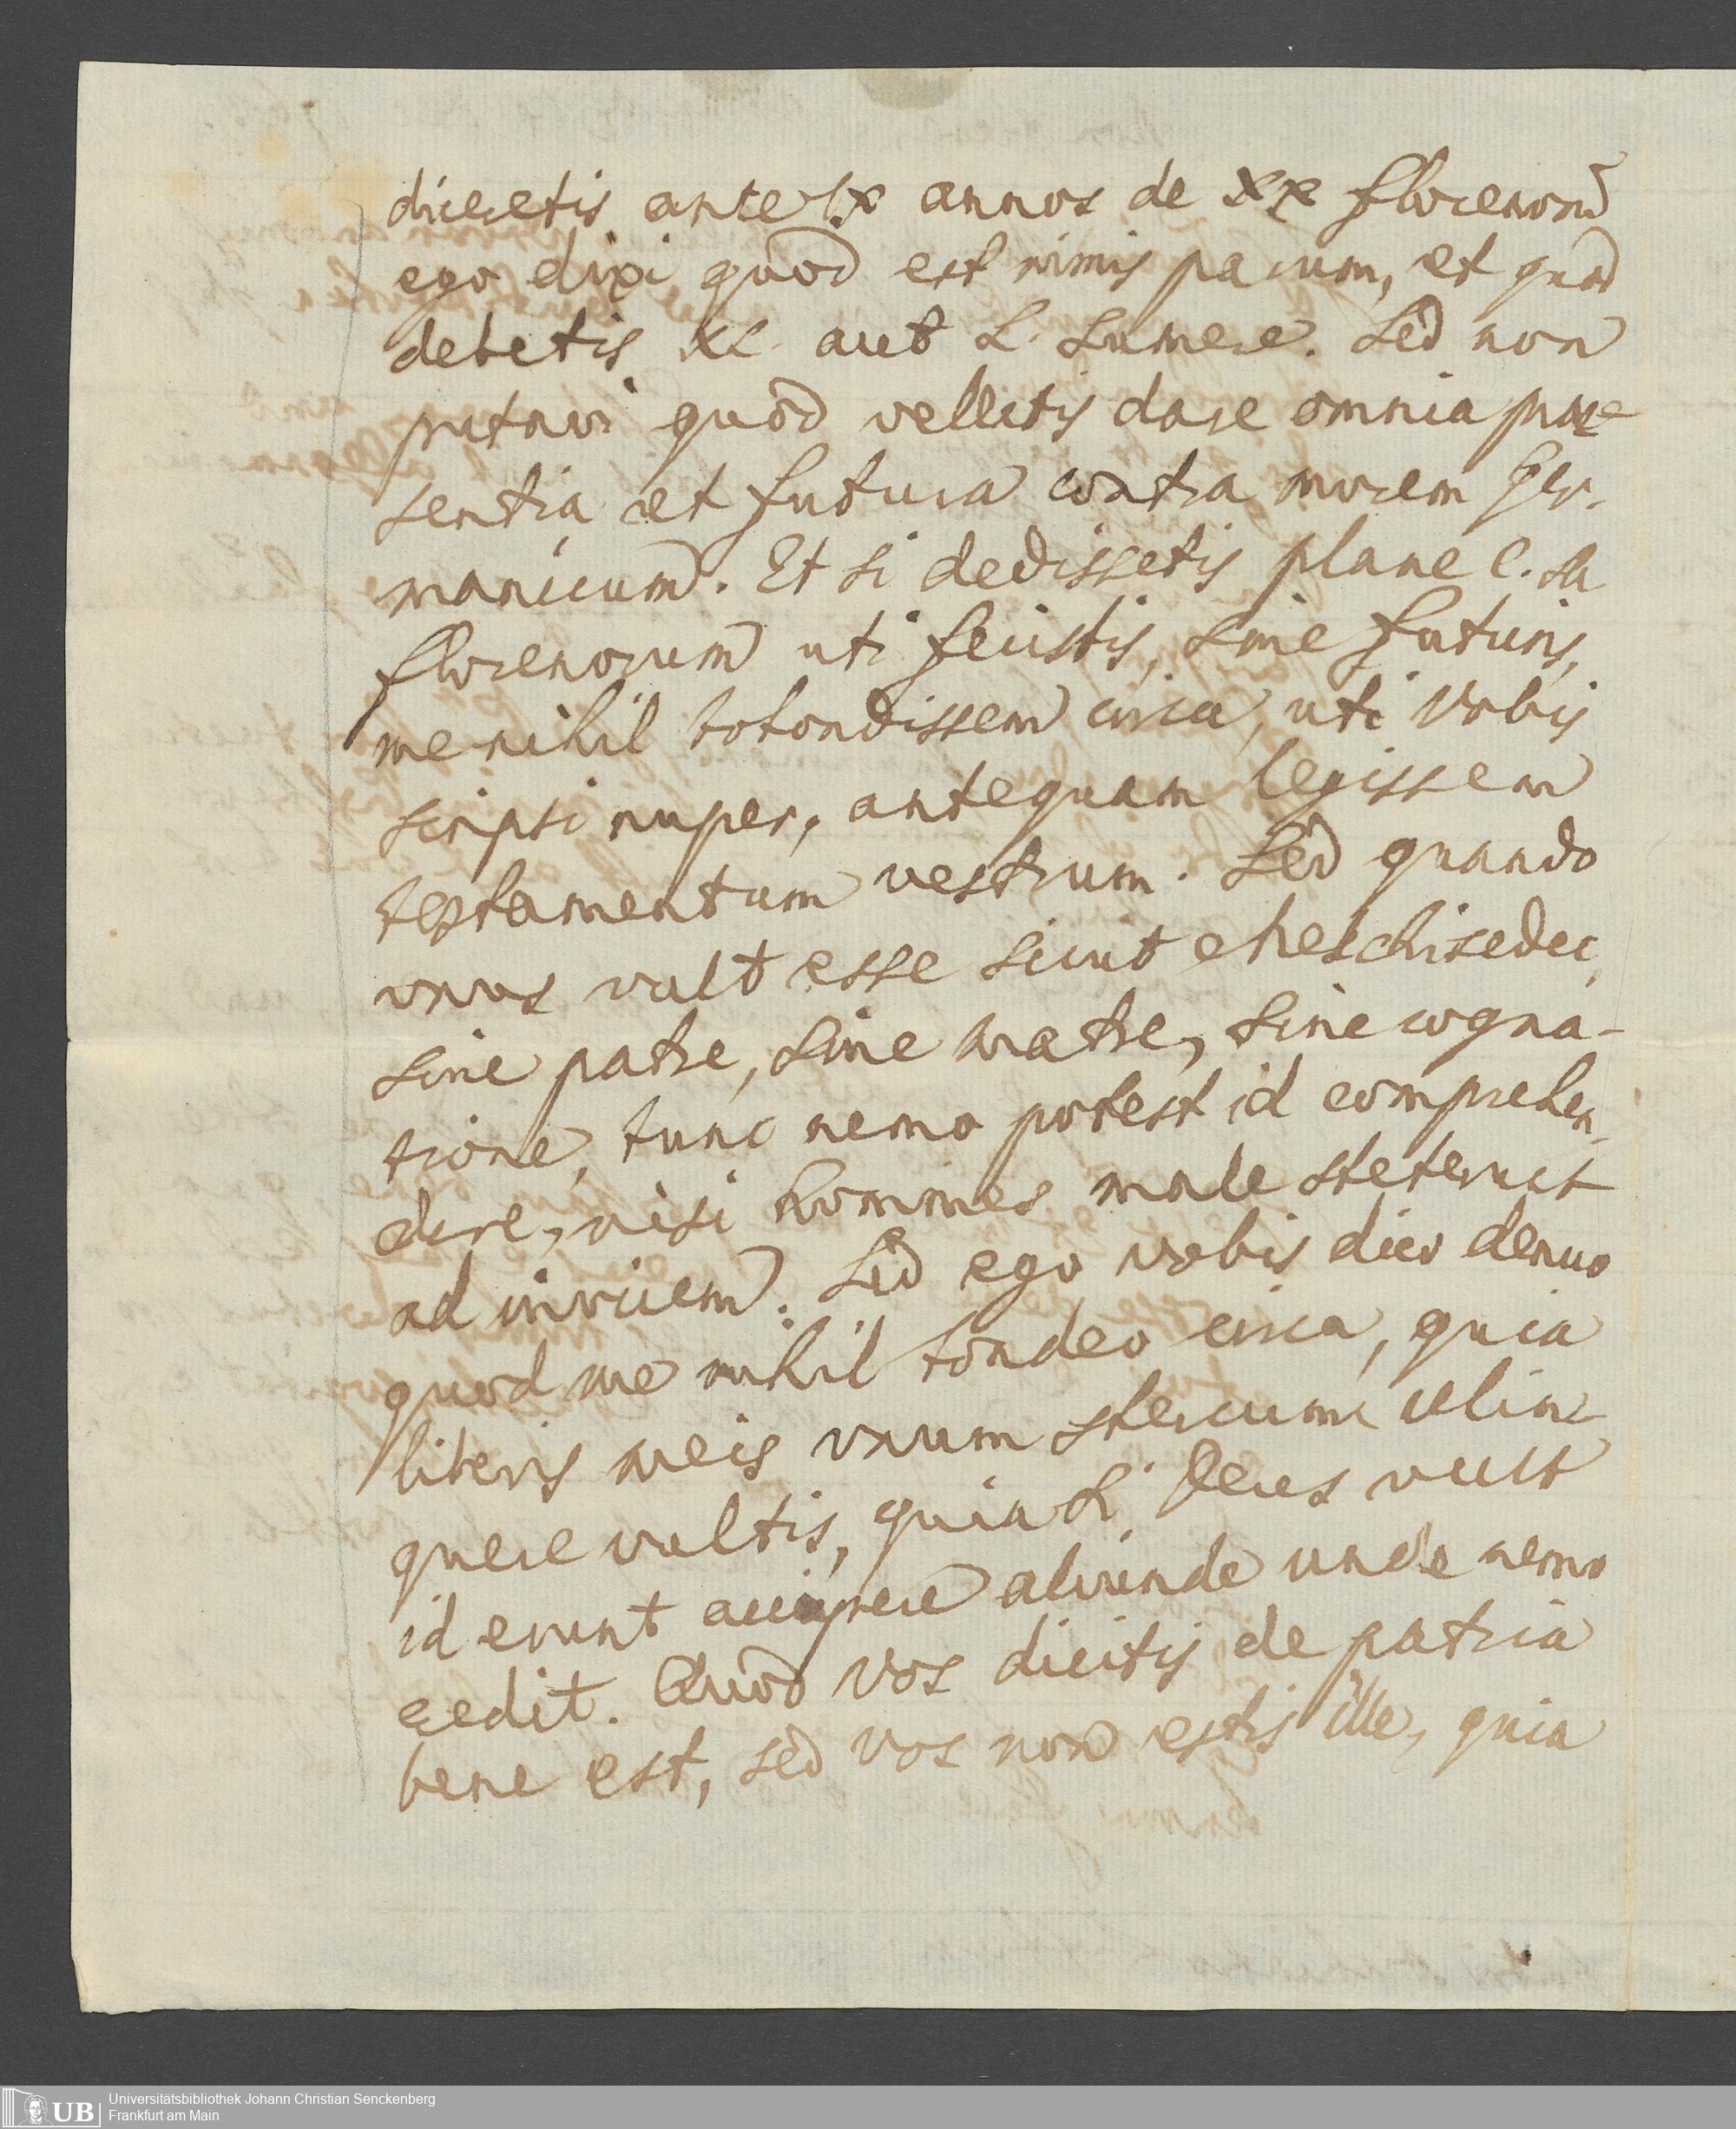 diceretis ante ix annos de xx florenorũ
ego dixi quod est nimis parum, et quod
debetis XL. aut L. sumere. Sed non
putavi quod velletis dare omnia prae-
sentia et futura contra morem Ger-
manicum. Et si dedissetis plane
florenorum uti fecistis, sine futuris,
me nihil totondissem circa, uti Vobis
scripsi nuper, antequam legissem
testamentum vestrum. Sed quando
unus vult esse sicut Melchisedec,
sine patre, sine matre, sine cogna-
tione, tunc nemo potest id comprehen-
dere, nisi homines male steterint
ad invicem. Sed ego vobis dico denuo
quod me nihil tondeo circa, quia
liberis meis unum stercum relin-
quere vultis, quia si Deus vult
id erunt accipere aliunde unde nemo
credit. Quod vos dicitis de patria
bene est, sed vos non estis ille, quia
UB
Universitätsbibliothek Johann Christian Senckenberg
Frankfurt am Main